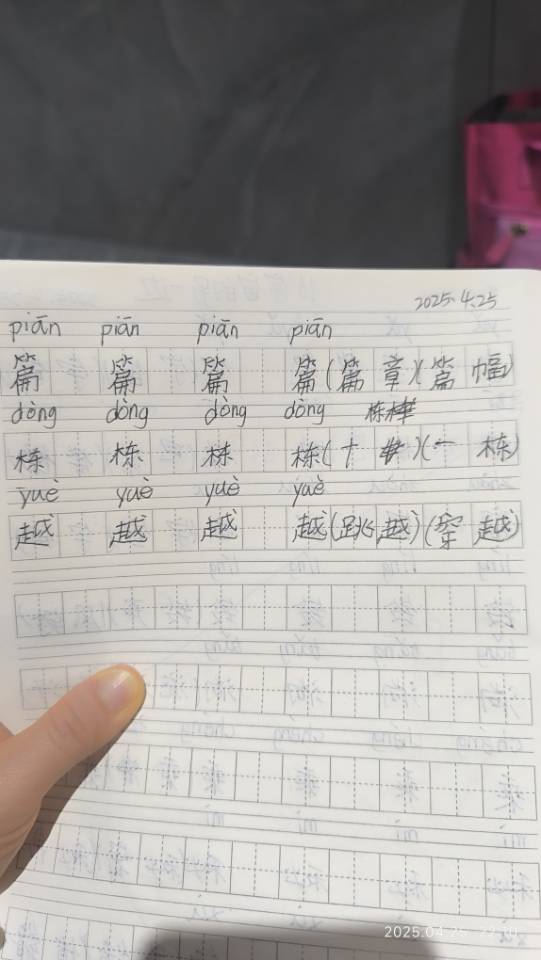 2025.4.25
piān piān piān piān
篇 篇 篇 篇(篇章)(篇幅)
dòng dòng dòng dòng 栋
栋 栋 栋 栋(十)(一栋)
yuè yuè yuè yuè
越 越 越 越(跳越)(穿越)
2025.04.25 22:10